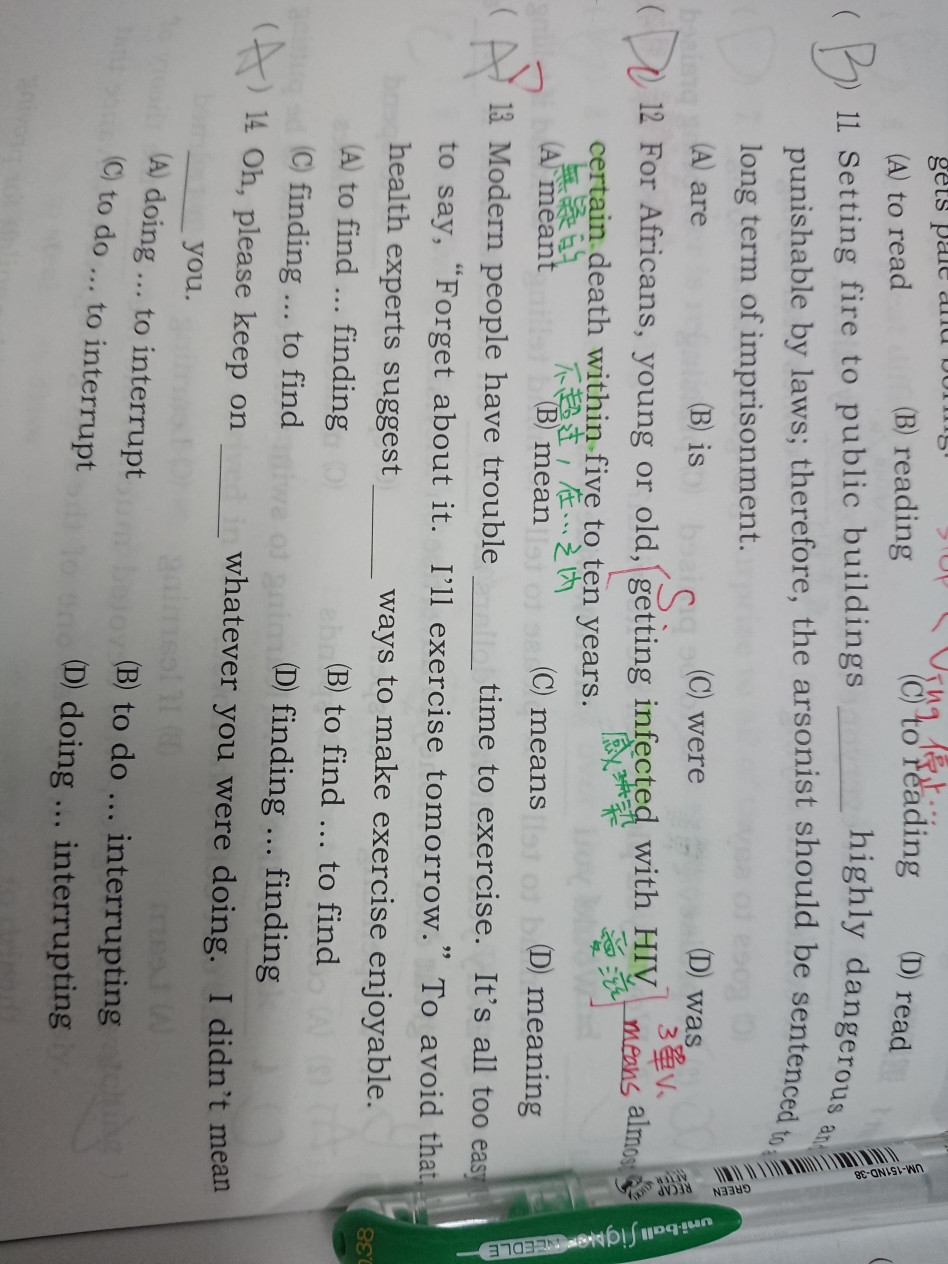 gets pale and
stop
Ving 停止...
(A) to read (B) reading (C) to reading (D) read
(B) 11 Setting fire to public buildings ______ highly dangerous and
punishable by laws; therefore, the arsonist should be sentenced to a
long term of imprisonment.
(A) are (B) is (C) were (D) was
S. 3單V.
(D) 12 For Africans, young or old, [getting infected with HIV] means almost
感染 愛滋
certain death within five to ten years.
無疑的 不超过,在...之內
(A) meant (B) mean (C) means (D) meaning
(A) 13 Modern people have trouble ______ time to exercise. It's all too easy
to say, “Forget about it. I'll exercise tomorrow.” To avoid that,
health experts suggest ______ ways to make exercise enjoyable.
(A) to find ... finding (B) to find ... to find
(C) finding ... to find (D) finding ... finding
(A) 14 Oh, please keep on ______ whatever you were doing. I didn't mean
______ you.
(A) doing ... to interrupt (B) to do ... interrupting
(C) to do ... to interrupt (D) doing ... interrupting
UM-151ND-38
GREEN
RECAP AFTER
uni-ball Signo NEEDLE
0.38